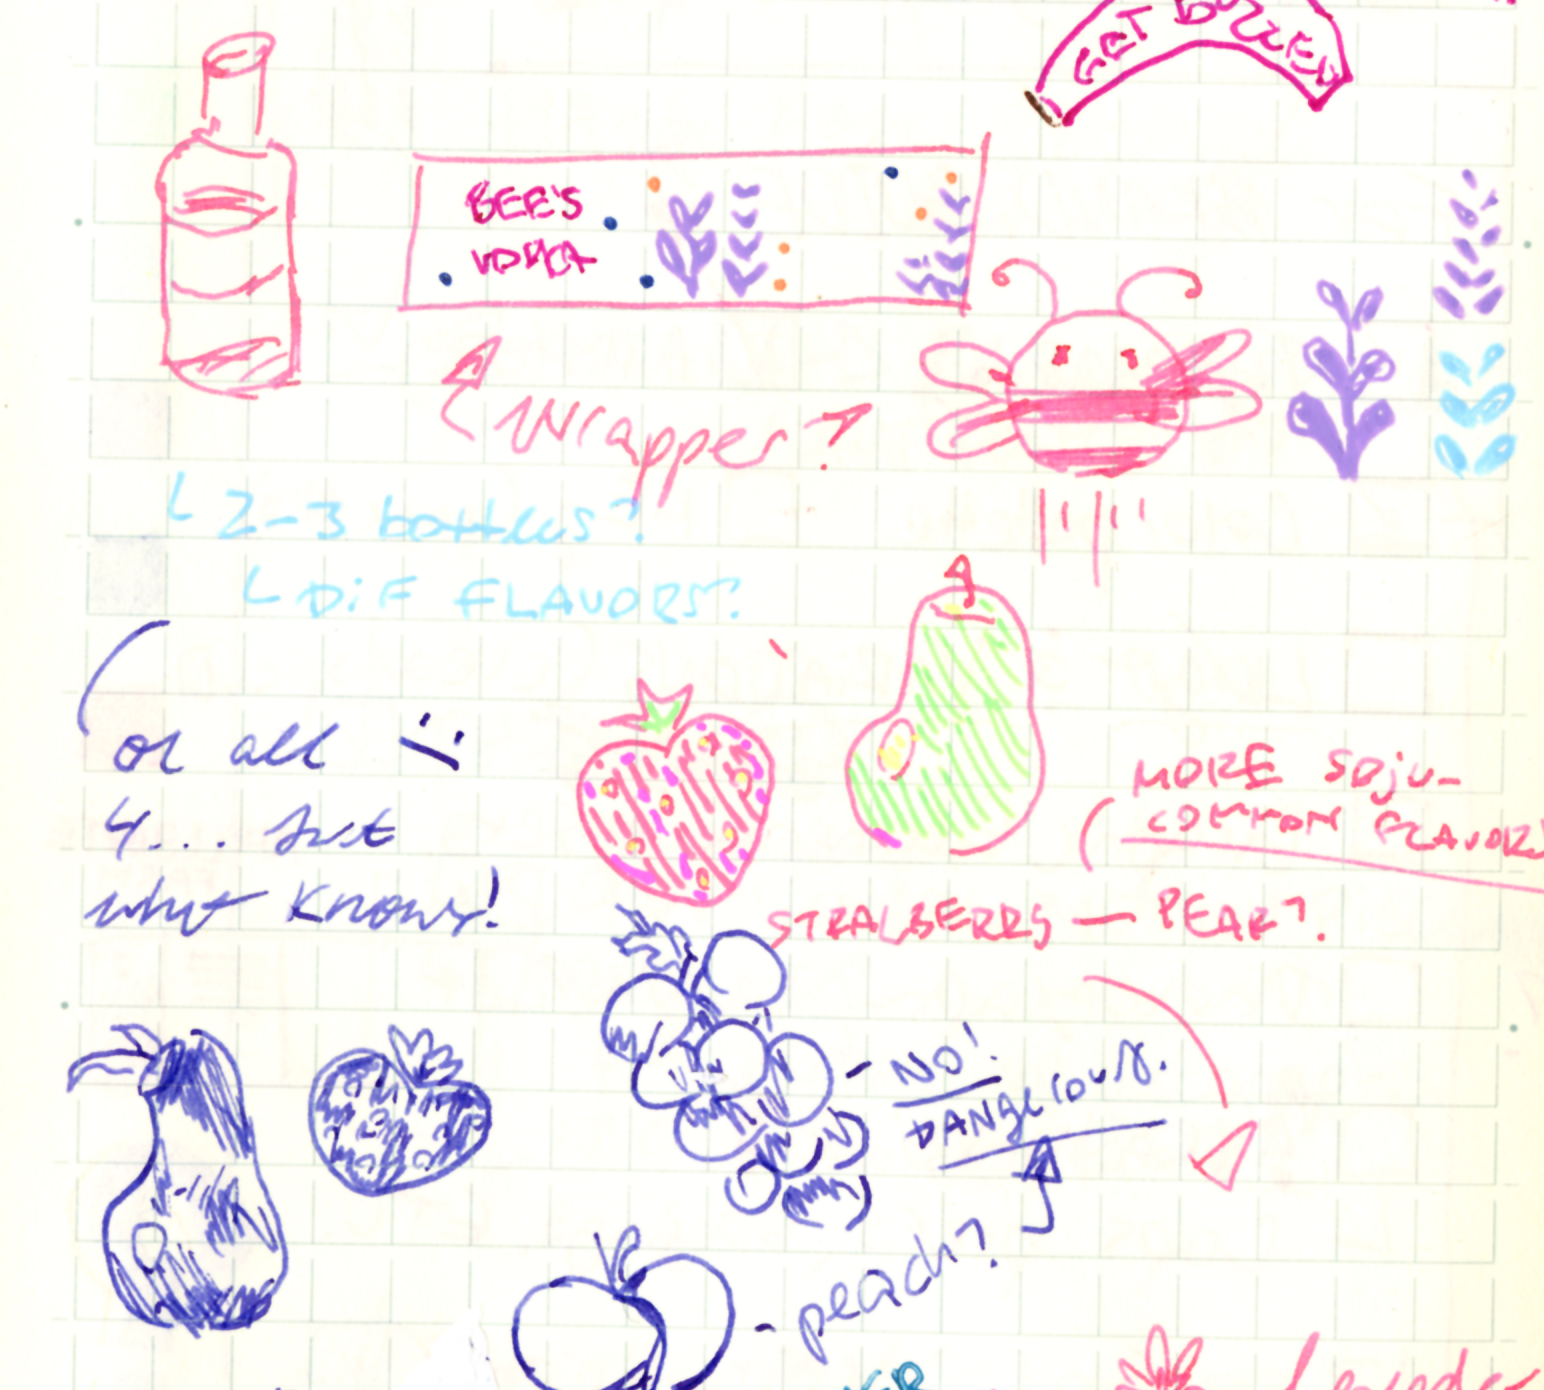 GET BUZZED
BEE'S
VODKA
Wrapper?
2-3 bottles?
DIF FLAVORS?
or all
4... Just
whut knows!
MORE SOJU-
COMMON FLAVORS
STRALBERRY — PEAR?
- NO!
DANGEROUS.
- peach?